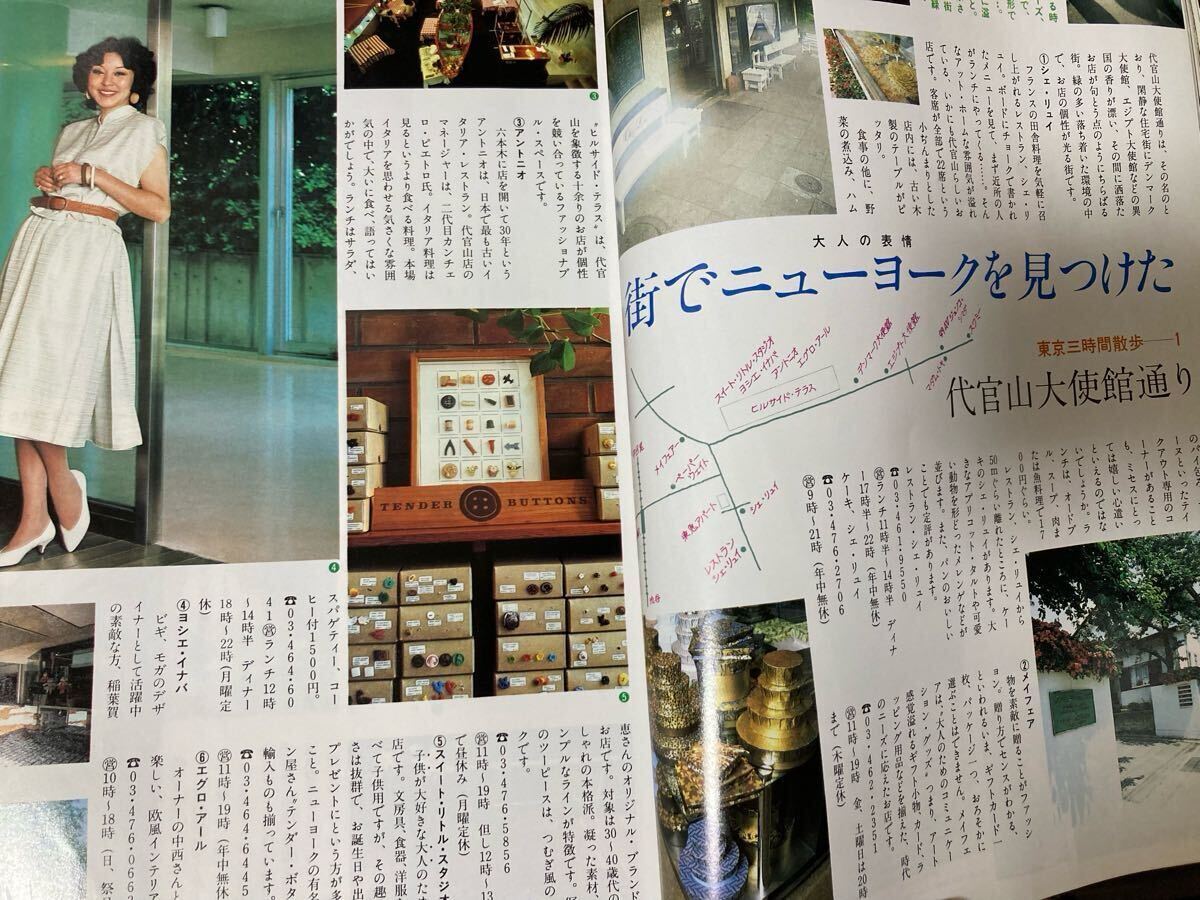 大人の表情
街でニューヨークを見つけた
東京三時間散歩——1
代官山大使館通り
代官山大使館通りは、その名のと
おり、閑静な住宅街にデンマーク
大使館、エジプト大使館などの異
国の香りが漂い、その間に洒落た
お店が句とう点のようにちらばる
街。緑の多い落ち着いた環境の中
で、お店の個性が光る街です。
①シェ・リュイ
フランスの田舎料理を気軽に召
し上がれるレストラン、シェ・リ
ュイ。ボードにチョークで書かれ
たメニューを見て、まず近所の人
がランチにやってくる……。そん
なアット・ホームな雰囲気が溢れ
ている、いかにも代官山らしいお
店です。客席が全部で22席という
小ぢんまりとした
店内には、古い木
製のテーブルがピ
ッタリ。
食事の他に、野
菜の煮込み、ハム
ーヌといったテイ
クアウト専用のコ
ーナーがあること
も、ミセスにとっ
ては嬉しい心遣い
といえるのではな
いでしょうか。ラ
ンチは、オードブ
ル、スープ、肉ま
たは魚料理で17
00円ぐらい。
レストラン、シェ・リュイから
50mぐらい離れたところに、ケー
キのシェ・リュイがあります。大
きなアプリコット・タルトや可愛
い動物を形どったメレンゲなどが
並びます。また、パンのおいしい
ことでも定評があります。
レストラン・シェ・リュイ
☎03・461・9550
㊂ランチ11時半〜14時半 ディナ
ー17時半〜22時(年中無休)
ケーキ、シェ・リュイ
☎03・476・2706
㊂9時〜21時(年中無休)
スイート・リトル・スタジオ
ヨシエ・イナバ
アントニオ
エグロ・アール
ヒルサイド・テラス
デンマーク大使館
エジプト大使館
メイフェアー
ペーパーウェイト
東急アパート
シェ・リュイ
レストラン
シェ・リュイ
渋谷
②メイフェア
物を素敵に贈ることがファッシ
ョン。贈り方でセンスがわかる、
といわれるいま、ギフトカード一
枚、パッケージ一つ、おろそかに
選ぶことはできません。メイフェ
アは、〝大人のためのコミュニケー
ション・グッズ〟つまり、アート
感覚溢れるギフト小物、カード、ラ
ッピング用品などを揃えた、時代
のニーズに応えたお店です。
☎03・462・2351
㊂11時〜19時 金、土曜日は20時
まで(木曜定休)
〝ヒルサイド・テラス〟は、代官
山を象徴する十余りのお店が個性
を競い合っているファッショナブ
ル・スペースです。
③アントニオ
六本木に店を開いて30年という
アントニオは、日本で最も古いイ
タリア・レストラン。代官山店の
マネージャーは、二代目カンチェ
ロ・ピエトロ氏。イタリア料理は
見るというより食べる料理。本場
イタリアを思わせる気さくな雰囲
気の中で、大いに食べ、語ってはい
かがでしょう。ランチはサラダ、
スパゲティー、コー
ヒー付1500円。
☎03・464・60
41㊂ランチ12時
〜14時半 ディナー
18時〜22時(月曜定
休)
④ヨシエ・イナバ
ビギ、モガのデザ
イナーとして活躍中
の素敵な方、稲葉賀
恵さんのオリジナル・ブランド
お店です。対象は30〜40歳代の
しゃれの本格派。凝った素材、
ンプルなラインが特徴です。
のツーピースは、つむぎ風の
クです。
☎03・476・5856
㊂11時〜19時 但し12時〜13
で昼休み(月曜定休)
⑤スイート・リトル・スタジオ
子供が大好きな大人のため
店です。文房具、食器、洋服
べて子供用ですが、その趣
さは抜群で、お誕生日や出
プレゼントにという方が多
こと。ニューヨークの有名
ン屋さん〝テンダー・ボタ
輸入ものも揃っています。
☎03・464・6445
㊂11時〜19時(年中無休
⑥エグロ・アール
オーナーの中西さんと
楽しい、欧風インテリア
☎03・476・066
㊂10時〜18時(日、祭
TENDER BUTTONS
3
4
5